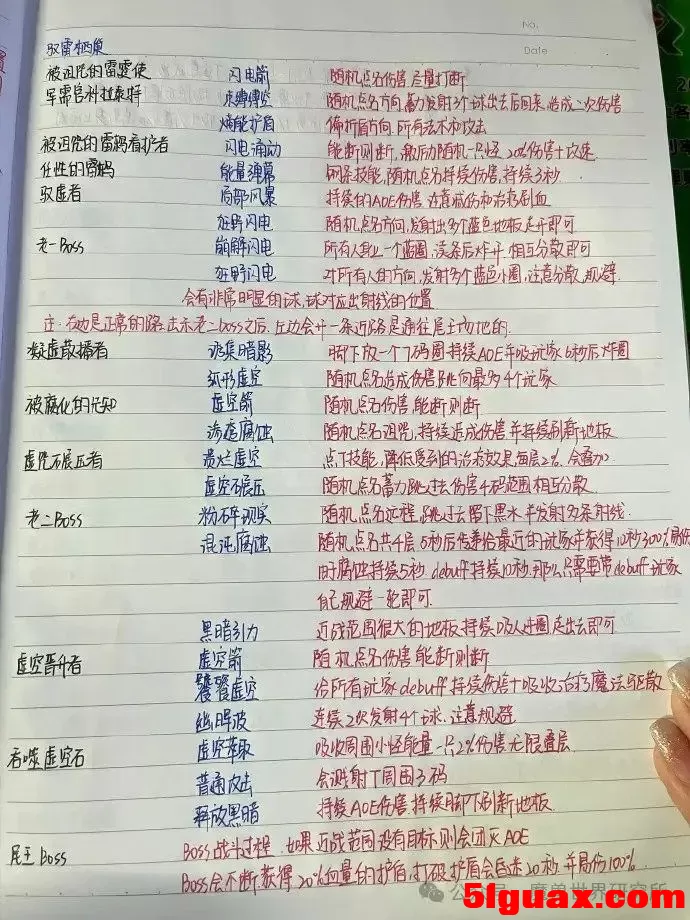 No.
Date
驭雷栖巢
被诅咒的雷霆使 闪电箭 随机点名伤害 尽量打断
军需官科拉莱特 束缚标空 随机点名方向,蓄力发射3个球出去后回来,造成二次伤害
熵能护盾 偏折盾方向,所有法术和攻击
被诅咒的雷鸦看护者 闪电涌动 能断则断,激励随机一只怪 20%伤害+攻速
任性的雷鸦 能量弹幕 随机点名持续伤害,持续3秒
驭虚者 局部风暴 持续的AOE伤害,注意减伤和治疗刷血
狂野闪电 随机点名方向,发射出多个蓝色地板走开即可
老一Boss 崩解闪电 所有人身上一个蓝圈,读条后炸开 相互分散即可
狂野闪电 对所有人的方向,发射多个蓝色小圈,注意分散、规避.
会有非常明显的球,球对应出射线的位置
注:右边是正常的路 击杀老二boss之后,左边会开一条近路是通往尾王场地的.
凝虚散播者 诱集暗影 脚下放一个7码圈 持续AOE并吸玩家 6秒后炸圈
弧形虚空 随机点名造成伤害 跳向最多4个玩家
被腐化的先知 虚空箭 随机点名伤害,能断则断
渗透腐蚀 随机点名诅咒,持续造成伤害并持续刷新地板
虚咒石碾压者 溃烂虚空 点T技能,降低受到的治疗效果,每层2%,会叠加
虚空碾压 随机点名蓄力跳过去伤害4码范围,相互分散.
老二Boss 粉碎现实 随机点名远程,跳过去留下黑水并发射多条射线.
混沌腐蚀 随机点名共4层 5秒后传染给最近的玩家并获得10秒300%易伤
由腐蚀持续5秒 debuff持续10秒 那么只需要带debuff玩家
自己规避一轮即可
黑暗引力 近战范围很大的地板,持续吸人进圈 走出去即可
虚空晋升者 虚空箭 随机点名伤害 能断则断
饕餮虚空 给所有玩家debuff持续伤害+吸收治疗 魔法驱散
幽晖波 连续2次发射4个球.注意规避
吞噬虚空石 虚空萃取 吸收周围小怪能量一只2%伤害无限叠层.
普通攻击 会溅射T周围3码
释放黑暗 持续AOE伤害 持续脚下刷新地板
尾王Boss Boss战斗过程,如果近战范围没有目标则会团灭AOE
Boss会不断获得20%血量的护盾,打破护盾会昏迷20秒,并易伤100%
公众号 · 魔兽世界研究所
5lfuax.com